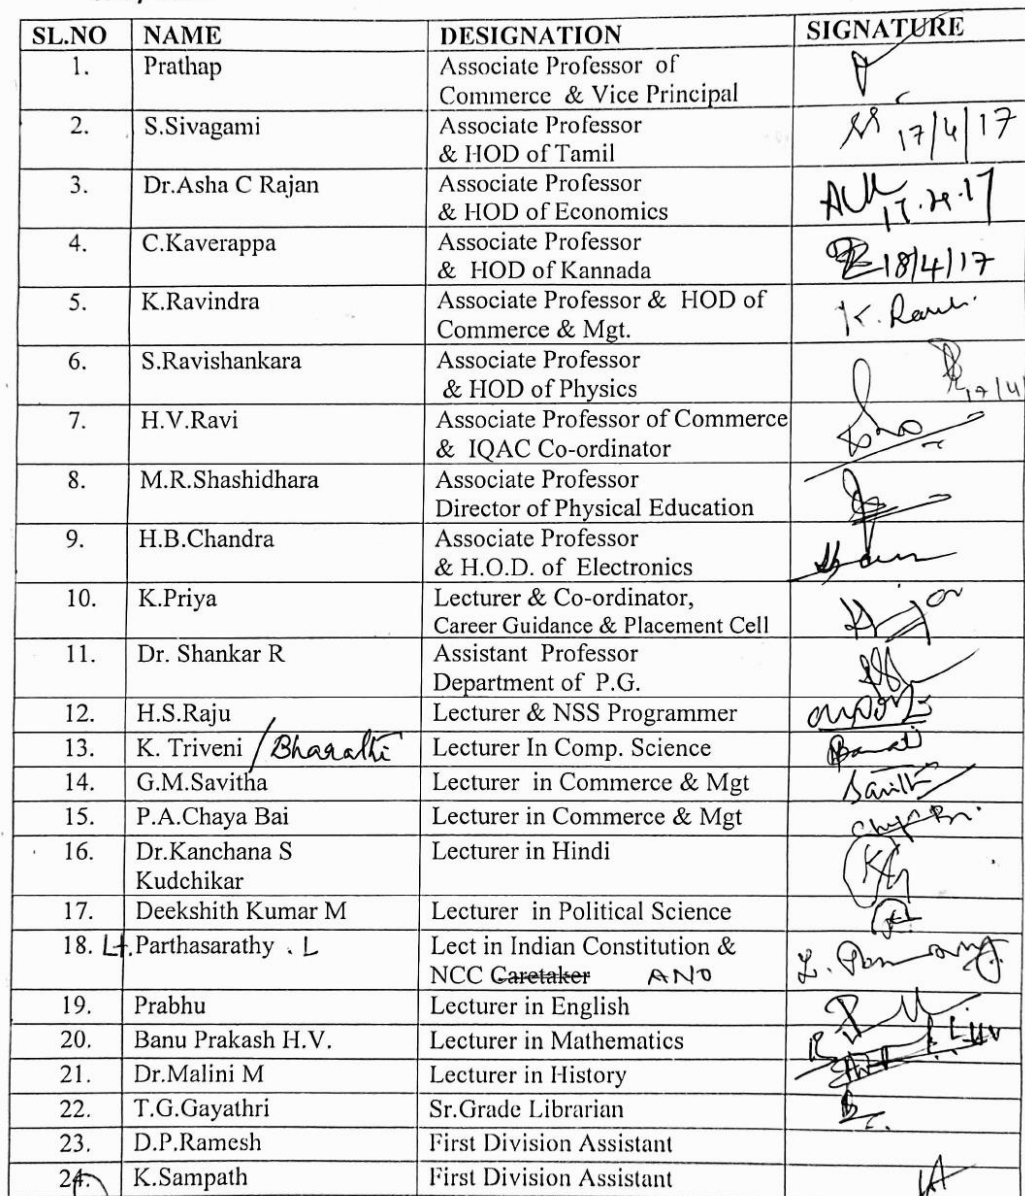 SL.NO NAME DESIGNATION SIGNATURE
1. Prathap Associate Professor of
Commerce & Vice Principal
2. S.Sivagami Associate Professor 17/4/17
& HOD of Tamil
3. Dr.Asha C Rajan Associate Professor
& HOD of Economics
4. C.Kaverappa Associate Professor 18/4/17
& HOD of Kannada
5. K.Ravindra Associate Professor & HOD of
Commerce & Mgt.
6. S.Ravishankara Associate Professor
& HOD of Physics
7. H.V.Ravi Associate Professor of Commerce
& IQAC Co-ordinator
8. M.R.Shashidhara Associate Professor
Director of Physical Education
9. H.B.Chandra Associate Professor
& H.O.D. of Electronics
10. K.Priya Lecturer & Co-ordinator,
Career Guidance & Placement Cell
11. Dr. Shankar R Assistant Professor
Department of P.G.
12. H.S.Raju Lecturer & NSS Programmer
13. K. Triveni / Bharathi Lecturer In Comp. Science
14. G.M.Savitha Lecturer in Commerce & Mgt
15. P.A.Chaya Bai Lecturer in Commerce & Mgt
16. Dr.Kanchana S Lecturer in Hindi
Kudchikar
17. Deekshith Kumar M Lecturer in Political Science
18. Lt. Parthasarathy . L Lect in Indian Constitution &
NCC Caretaker ANO
19. Prabhu Lecturer in English
20. Banu Prakash H.V. Lecturer in Mathematics
21. Dr.Malini M Lecturer in History
22. T.G.Gayathri Sr.Grade Librarian
23. D.P.Ramesh First Division Assistant
24. K.Sampath First Division Assistant